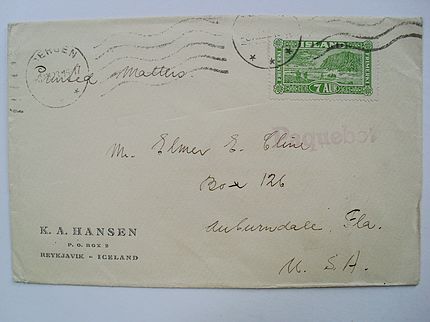 BERGEN
Printed Matters.
ISLAND
7 AUR
Paquebot
Mr. Elmer E. Cline
Box 126
Auburndale, Fla.
U. S. A.
K. A. HANSEN
P. O. BOX 2
REYKJAVIK - ICELAND